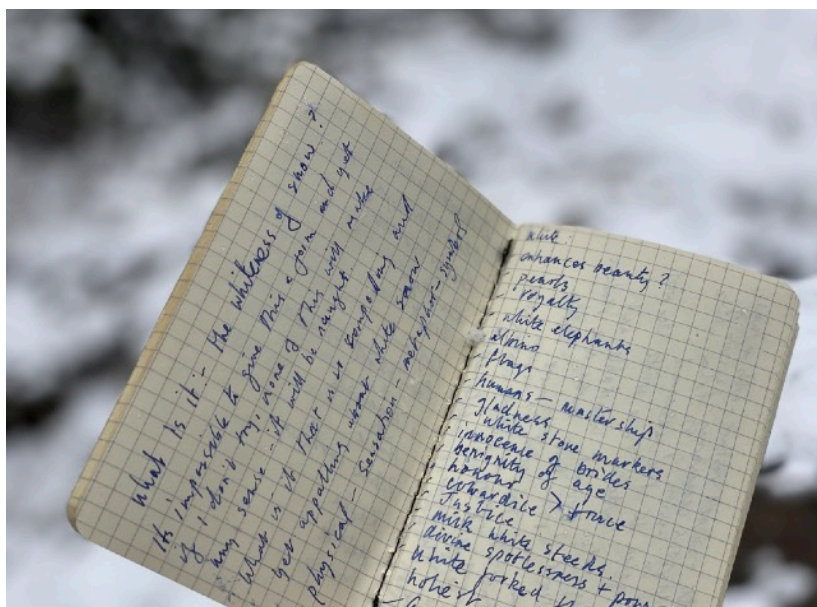 What is it:- the whiteness of snow?
Its impossible to give this a form and yet
if I don't try, none of this will make
any sense - it will be naught.
What is it that is so compelling and
yet appalling about white snow
physical - sensation - metaphor - symbol
White.
enhances beauty?
pearls
royalty
white elephants
albino
flags
humans - mastership
gladness
white stone markers
innocence of brides
benignity of age
honour
cowardice > france
Justice.
milk white steeds.
divine spotlessness + power
White forked
holiest